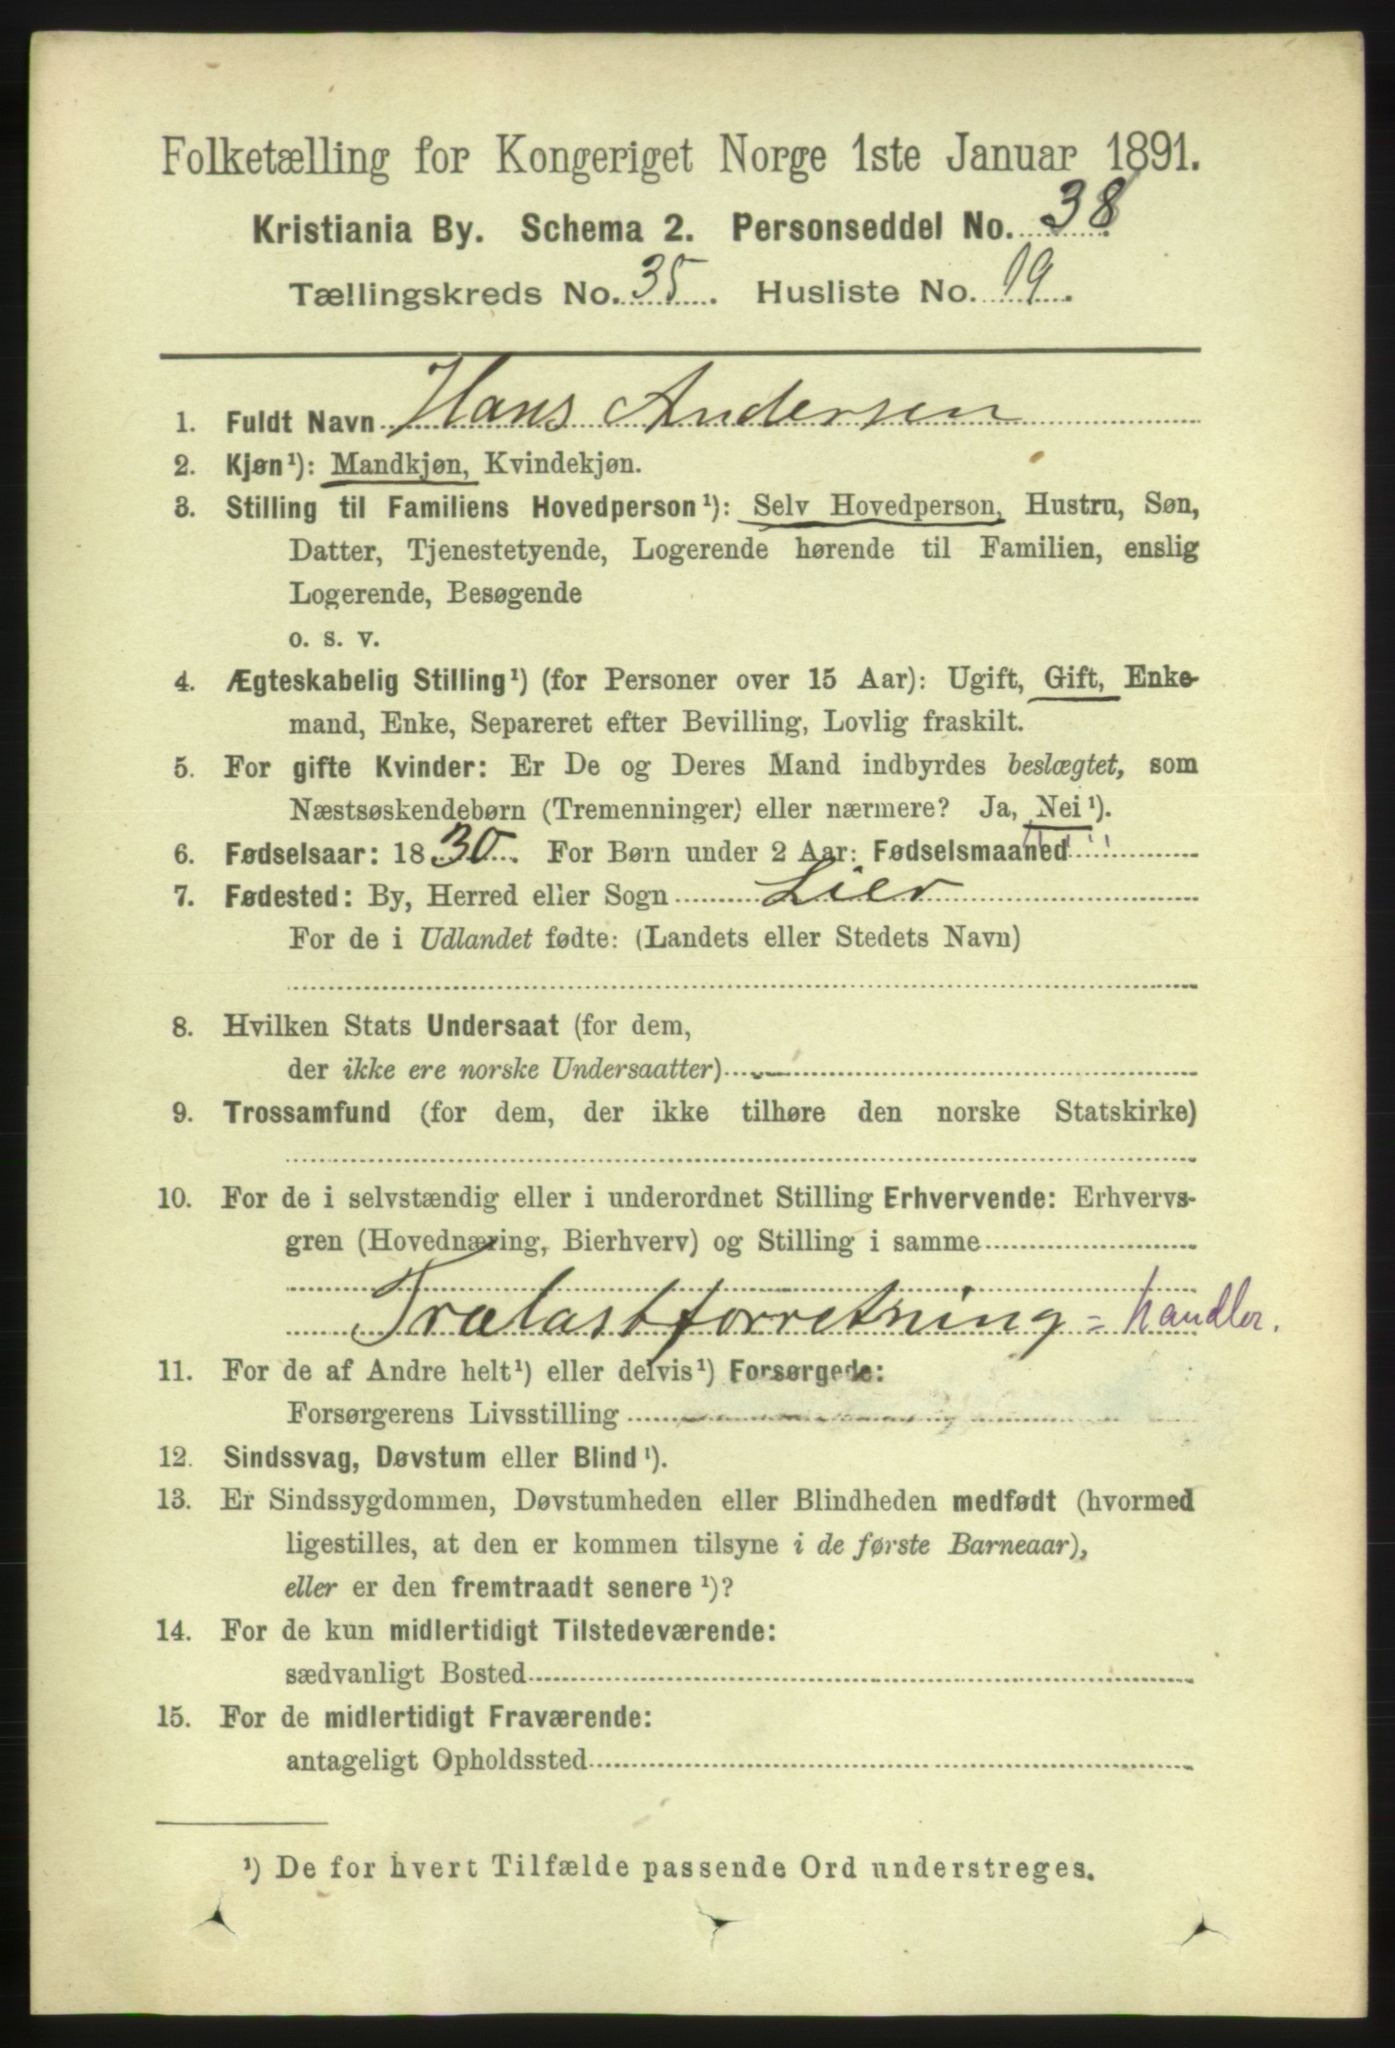 Folketælling for Kongeriget Norge 1ste Januar 1891.
Kristiania By. Schema 2. Personseddel No. 38
Tællingskreds No. 35. Husliste No. 19.
1. Fuldt Navn Hans Andersen
2. Kjøn¹): Mandkjøn, Kvindekjøn.
3. Stilling til Familiens Hovedperson¹): Selv Hovedperson, Hustru, Søn,
Datter, Tjenestetyende, Logerende hørende til Familien, enslig
Logerende, Besøgende
o. s. v.
4. Ægteskabelig Stilling¹) (for Personer over 15 Aar): Ugift, Gift, Enke-
mand, Enke, Separeret efter Bevilling, Lovlig fraskilt.
5. For gifte Kvinder: Er De og Deres Mand indbyrdes beslægtet, som
Næstsøskendebørn (Tremenninger) eller nærmere? Ja, Nei¹).
6. Fødselsaar: 1830. For Børn under 2 Aar: Fødselsmaaned
7. Fødested: By, Herred eller Sogn Lier
For de i Udlandet fødte: (Landets eller Stedets Navn)
8. Hvilken Stats Undersaat (for dem,
der ikke ere norske Undersaatter)
9. Trossamfund (for dem, der ikke tilhøre den norske Statskirke)
10. For de i selvstændig eller i underordnet Stilling Erhvervende: Erhvervs-
gren (Hovednæring, Bierhverv) og Stilling i samme
Trælastforretning = handler.
11. For de af Andre helt¹) eller delvis¹) Forsørgede:
Forsørgerens Livsstilling
12. Sindssvag, Døvstum eller Blind¹).
13. Er Sindssygdommen, Døvstumheden eller Blindheden medfødt (hvormed
ligestilles, at den er kommen tilsyne i de første Barneaar),
eller er den fremtraadt senere¹)?
14. For de kun midlertidigt Tilstedeværende:
sædvanligt Bosted
15. For de midlertidigt Fraværende:
antageligt Opholdssted
¹) De for hvert Tilfælde passende Ord understreges.